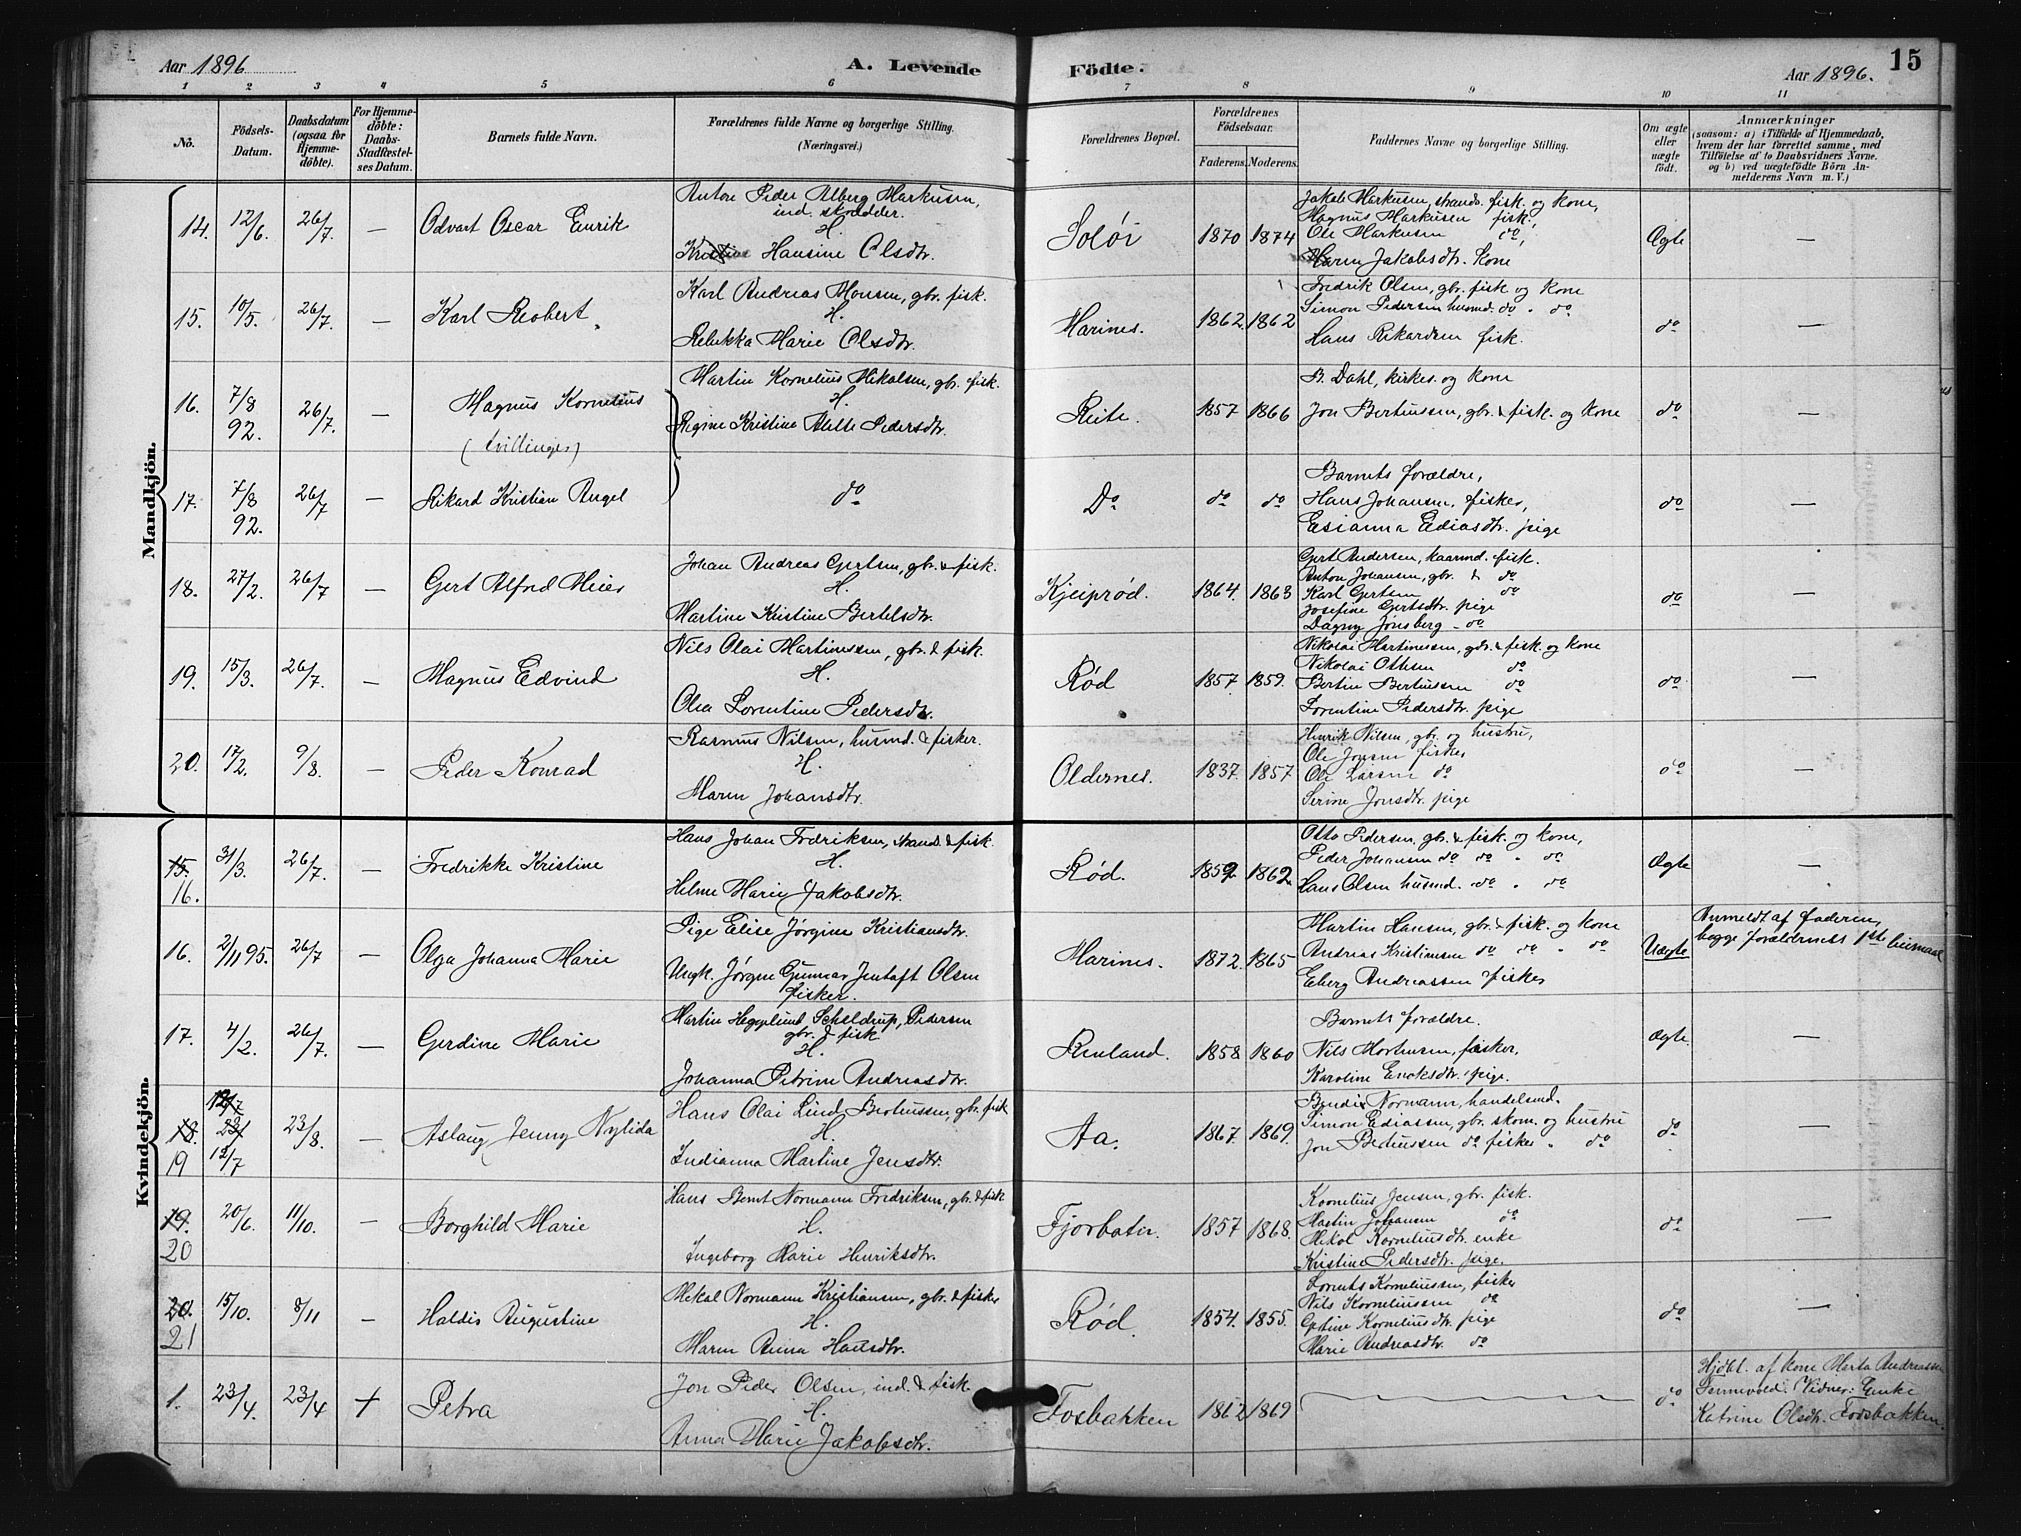 Aar 1896
A. Levende
Födte.
Aar 1896.
15
1 2 3 4 5 6 7 8 9 10 11
No.
Födsels-
Datum.
Daabsdatum
(ogsaa for
Hjemme-
döbte).
For Hjemme-
döbte:
Daabs-
Stadfæstel-
ses Datum.
Barnets fulde Navn.
Forældrenes fulde Navne og borgerlige Stilling.
(Næringsvei.)
Forældrenes Bopæl.
Forældrenes
Födselsaar.
Faderens. Moderens.
Faddernes Navne og borgerlige Stilling.
Om ægte
eller
uægte
födt.
Anmærkninger
(saasom: a) i Tilfælde af Hjemmedaab,
hvem der har forrettet samme, med
Tilföielse af to Daabsvidners Navne,
og b) ved uægtefödte Börn An-
melderens Navn m. V.)
Mandkjön.
14. 12/6. 26/7. — Odvart Oscar Enrik
Anton Peder Alberg Markusen,
ind. skrædder.
H.
Kristine Hansine Olsdtr.
Soløi 1870 1874
Jakob Markusen, strands. fisk. og kone,
Magnus Markusen fisk.
Ole Markusen do,
Maren Jakobsdtr. kone
Ægte —
15. 10/5. 26/7. — Karl Robert
Karl Andreas Monsen, gbr. fisk.
H.
Rebekka Marie Olsdtr.
Marines. 1862. 1862
Fredrik Olsen, gbr. fisk og kone
Simon Pedersen husmd. do " do
Hans Rikardsen fisk.
do —
16. 7/8 92. 26/7. — Magnus Kornelius
(tvillinger)
Martin Kornelius Mikalsen, gbr. fisk.
H.
Regine Kristine Alette Pedersdtr.
Reite. 1857. 1866
B. Dahl, kirkes. og kone
Jon Bertiussen, gbr. & fisk. og kone
do —
17. 7/8 92. 26/7 — Rikard Kristian Angel
do
Do do do
Barnets forældre,
Hans Johansen, fisker,
Esianna Ediasdtr. pige
do —
18. 27/2. 26/7 — Gert Alfred Meier
Johan Andreas Gertsen, gbr. & fisk.
H.
Martine Kristine Bertelsdtr.
Kjeiprød. 1864. 1863
Gert Andersen, kaarmd. fisk.
Anton Johansen, gbr. & do
Karl Gertsen do
Josefine Gertsdtr. pige
Dagny Jonsberg - do
do —
19. 15/3. 26/7. — Magnus Edvind
Nils Olai Martinussen, gbr. & fisk.
H.
Olea Lorentine Pedersdtr.
Rød 1857. 1859.
Nikolai Martinussen, gdr. & fisk. og kone
Nikolai Ottesen do
Bertin Bertiussen do
Lorentine Pedersdtr. pige
do. —
20. 17/2. 9/8. — Peder Konrad
Rasmus Nilsen, husmd. & fisker.
H.
Maren Johansdtr.
Oldernes. 1837. 1857
Henrik Nilsen, gbr. og hustru,
Ole Jonsen fisker,
Ole Larsen do
Serine Jonsdtr. pige
do —
Kvindekjön.
15. 31/3. 26/7. — Fredrikke Kristine
16.
Hans Johan Fredriksen, strand. & fisk.
H.
Helene Marie Jakobsdtr.
Rød. 1859. 1862.
Otto Pedersen gbr. & fisk. og kone,
Peder Johansen do do " do
Hans Olsen husmd. do " do
Ægte —
16. 2/11 95. 26/7 — Olga Johanna Marie
Pige Elise Jørgine Kristiansdtr.
Ungk. Jørgen Gunnar Jentoft Olsen
fisker.
Marines. 1872. 1865
Martin Hansen, gbr. & fisk. og kone
Andreas Kristiansen do do " do
Eberg Andreassen fisker
Uægte
Anmeldt af faderen,
begge forældrenes 1ste leiermaal
17. 4/2. 26/7. — Gerdine Marie
Martin Hegglund Scheldrup, Pedersen
gbr. & fisk
H.
Johanna Petrine Andreasdtr.
Renland. 1858. 1860
Barnets forældre.
Nils Mortensen, fisker,
Karoline Enoksdtr. pige.
Ægte. —
18. 23/8. — Aslaug Jenny Nylida
19 12/7
Hans Olai Lind Bertiussen, gbr. fisk
H.
Indianna Martine Jensdtr.
Aa. 1867. 1869.
Bendix Normann, handelsmd.
Simon Ediassen, gbr. skom. og hustru
Jon Bertiussen do fisker " do
do —
19. 20/6. 11/10. — Borghild Marie
20
Hans Bernt Normann Fredriksen, gbr. & fisk
H.
Ingeborg Marie Henriksdtr.
Fjorbotn. 1857 1868.
Kornelius Jensen, gbr. fisk.
Martin Johansen do
Mikol Korneliusdtr. enke
Kristine Pedersdtr. pige.
do —
20. 15/10. 8/11 — Haldis Augustine
21
Mikal Normann Kristiansen, gbr. & fisker
H.
Maren Anna Hansdtr.
Rød. 1854. 1855.
Lornts Korneliussen, fisker
Nils Korneliussen do
Gertine Korneliusdtr. pige
Marie Andreasdtr. do
do —
1. 23/4. 23/4 + Petra
Jon Peder Olsen, ind. & fisk.
H.
Anna Marie Jakobsdtr.
Fosbakken 1862 1869
do
Hjdbt. af kone Marta Andreassen
Tennvold. Vidner: Enke
Katrine Olsdtr. Fodsbakken.